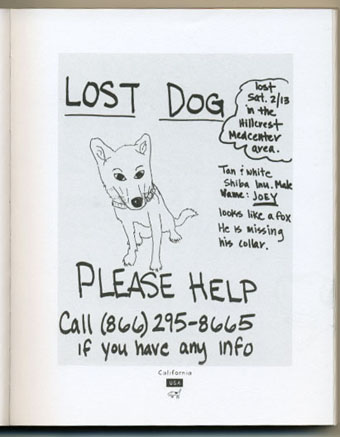 LOST DOG
lost
Sat. 2/13
in the
Hillcrest
Medcenter
area.
Tan & white
Shiba Inu. Male
Name: JOEY
looks like a fox
He is missing
his collar.
PLEASE HELP
Call (866) 295-8665
if you have any info
California
USA